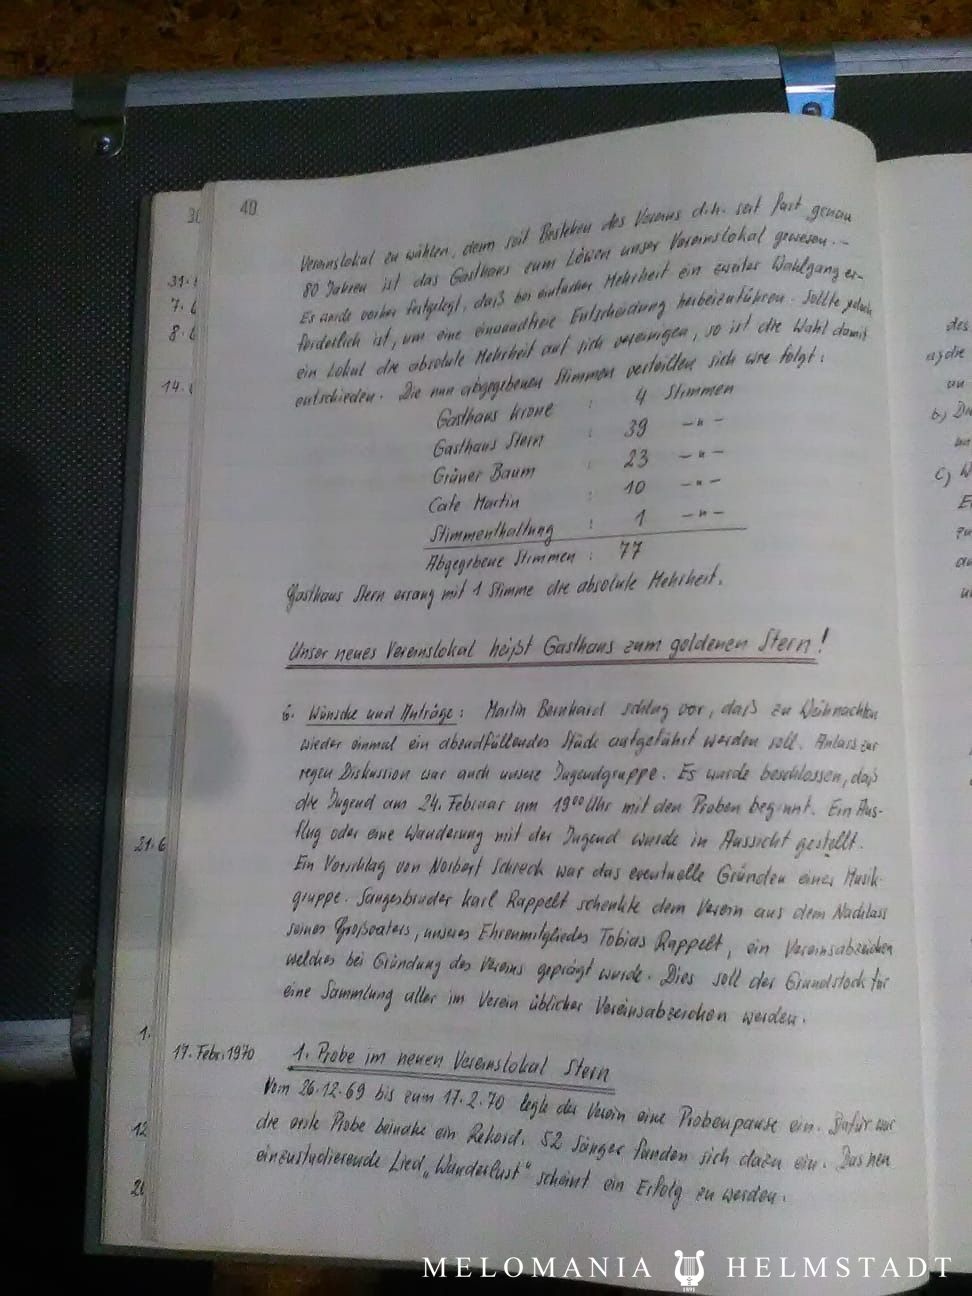 40
Vereinslokal zu wählen, denn seit Bestehen des Vereins d.h. seit fast genau
80 Jahren ist das Gasthaus zum Löwen unser Vereinslokal gewesen. -
Es wurde vorher festgelegt, daß bei einfacher Mehrheit ein zweiter Wahlgang er-
forderlich ist, um eine einwandfreie Entscheidung herbeizuführen. Sollte jedoch
ein Lokal die absolute Mehrheit auf sich vereinigen, so ist die Wahl damit
entschieden. Die nun abgegebenen Stimmen verteilten sich wie folgt:
Gasthaus Krone : 4 Stimmen
Gasthaus Stern : 39 -"-
Grüner Baum : 23 -"-
Cafe Martin : 10 -"-
Stimmenthaltung : 1 -"-
Abgegebene Stimmen : 77
Gasthaus Stern errang mit 1 Stimme die absolute Mehrheit.
Unser neues Vereinslokal heißt Gasthaus zum goldenen Stern!
6. Wünsche und Anträge: Martin Bernhard schlug vor, daß zu Weihnachten
wieder einmal ein abendfüllendes Stück aufgeführt werden soll. Anlass zur
regen Diskussion war auch unsere Jugendgruppe. Es wurde beschlossen, daß
die Jugend am 24. Februar um 19⁰⁰ Uhr mit den Proben beginnt. Ein Aus-
flug oder eine Wanderung mit der Jugend wurde in Aussicht gestellt.
Ein Vorschlag von Norbert Schreck war das eventuelle Gründen einer Musik-
gruppe. Sangesbruder Karl Rappelt schenkte dem Verein aus dem Nachlass
seines Großvaters, unseres Ehrenmitgliedes Tobias Rappelt, ein Vereinsabzeichen
welches bei Gründung des Vereins geprägt wurde. Dies soll der Grundstock für
eine Sammlung aller im Verein üblicher Vereinsabzeichen werden.
17. Febr. 1970 1. Probe im neuen Vereinslokal Stern
Vom 26.12.69 bis zum 17.2.70 legte der Verein eine Probenpause ein. Dafür war
die erste Probe beinahe ein Rekord. 52 Sänger fanden sich dazu ein. Das neu
einzustudierende Lied „Wanderlust" scheint ein Erfolg zu werden.
31.
7. 6
8. 6
14.
21.6
1.
12
20
des
a) die
b) Di
c) W
MELOMANIA HELMSTADT